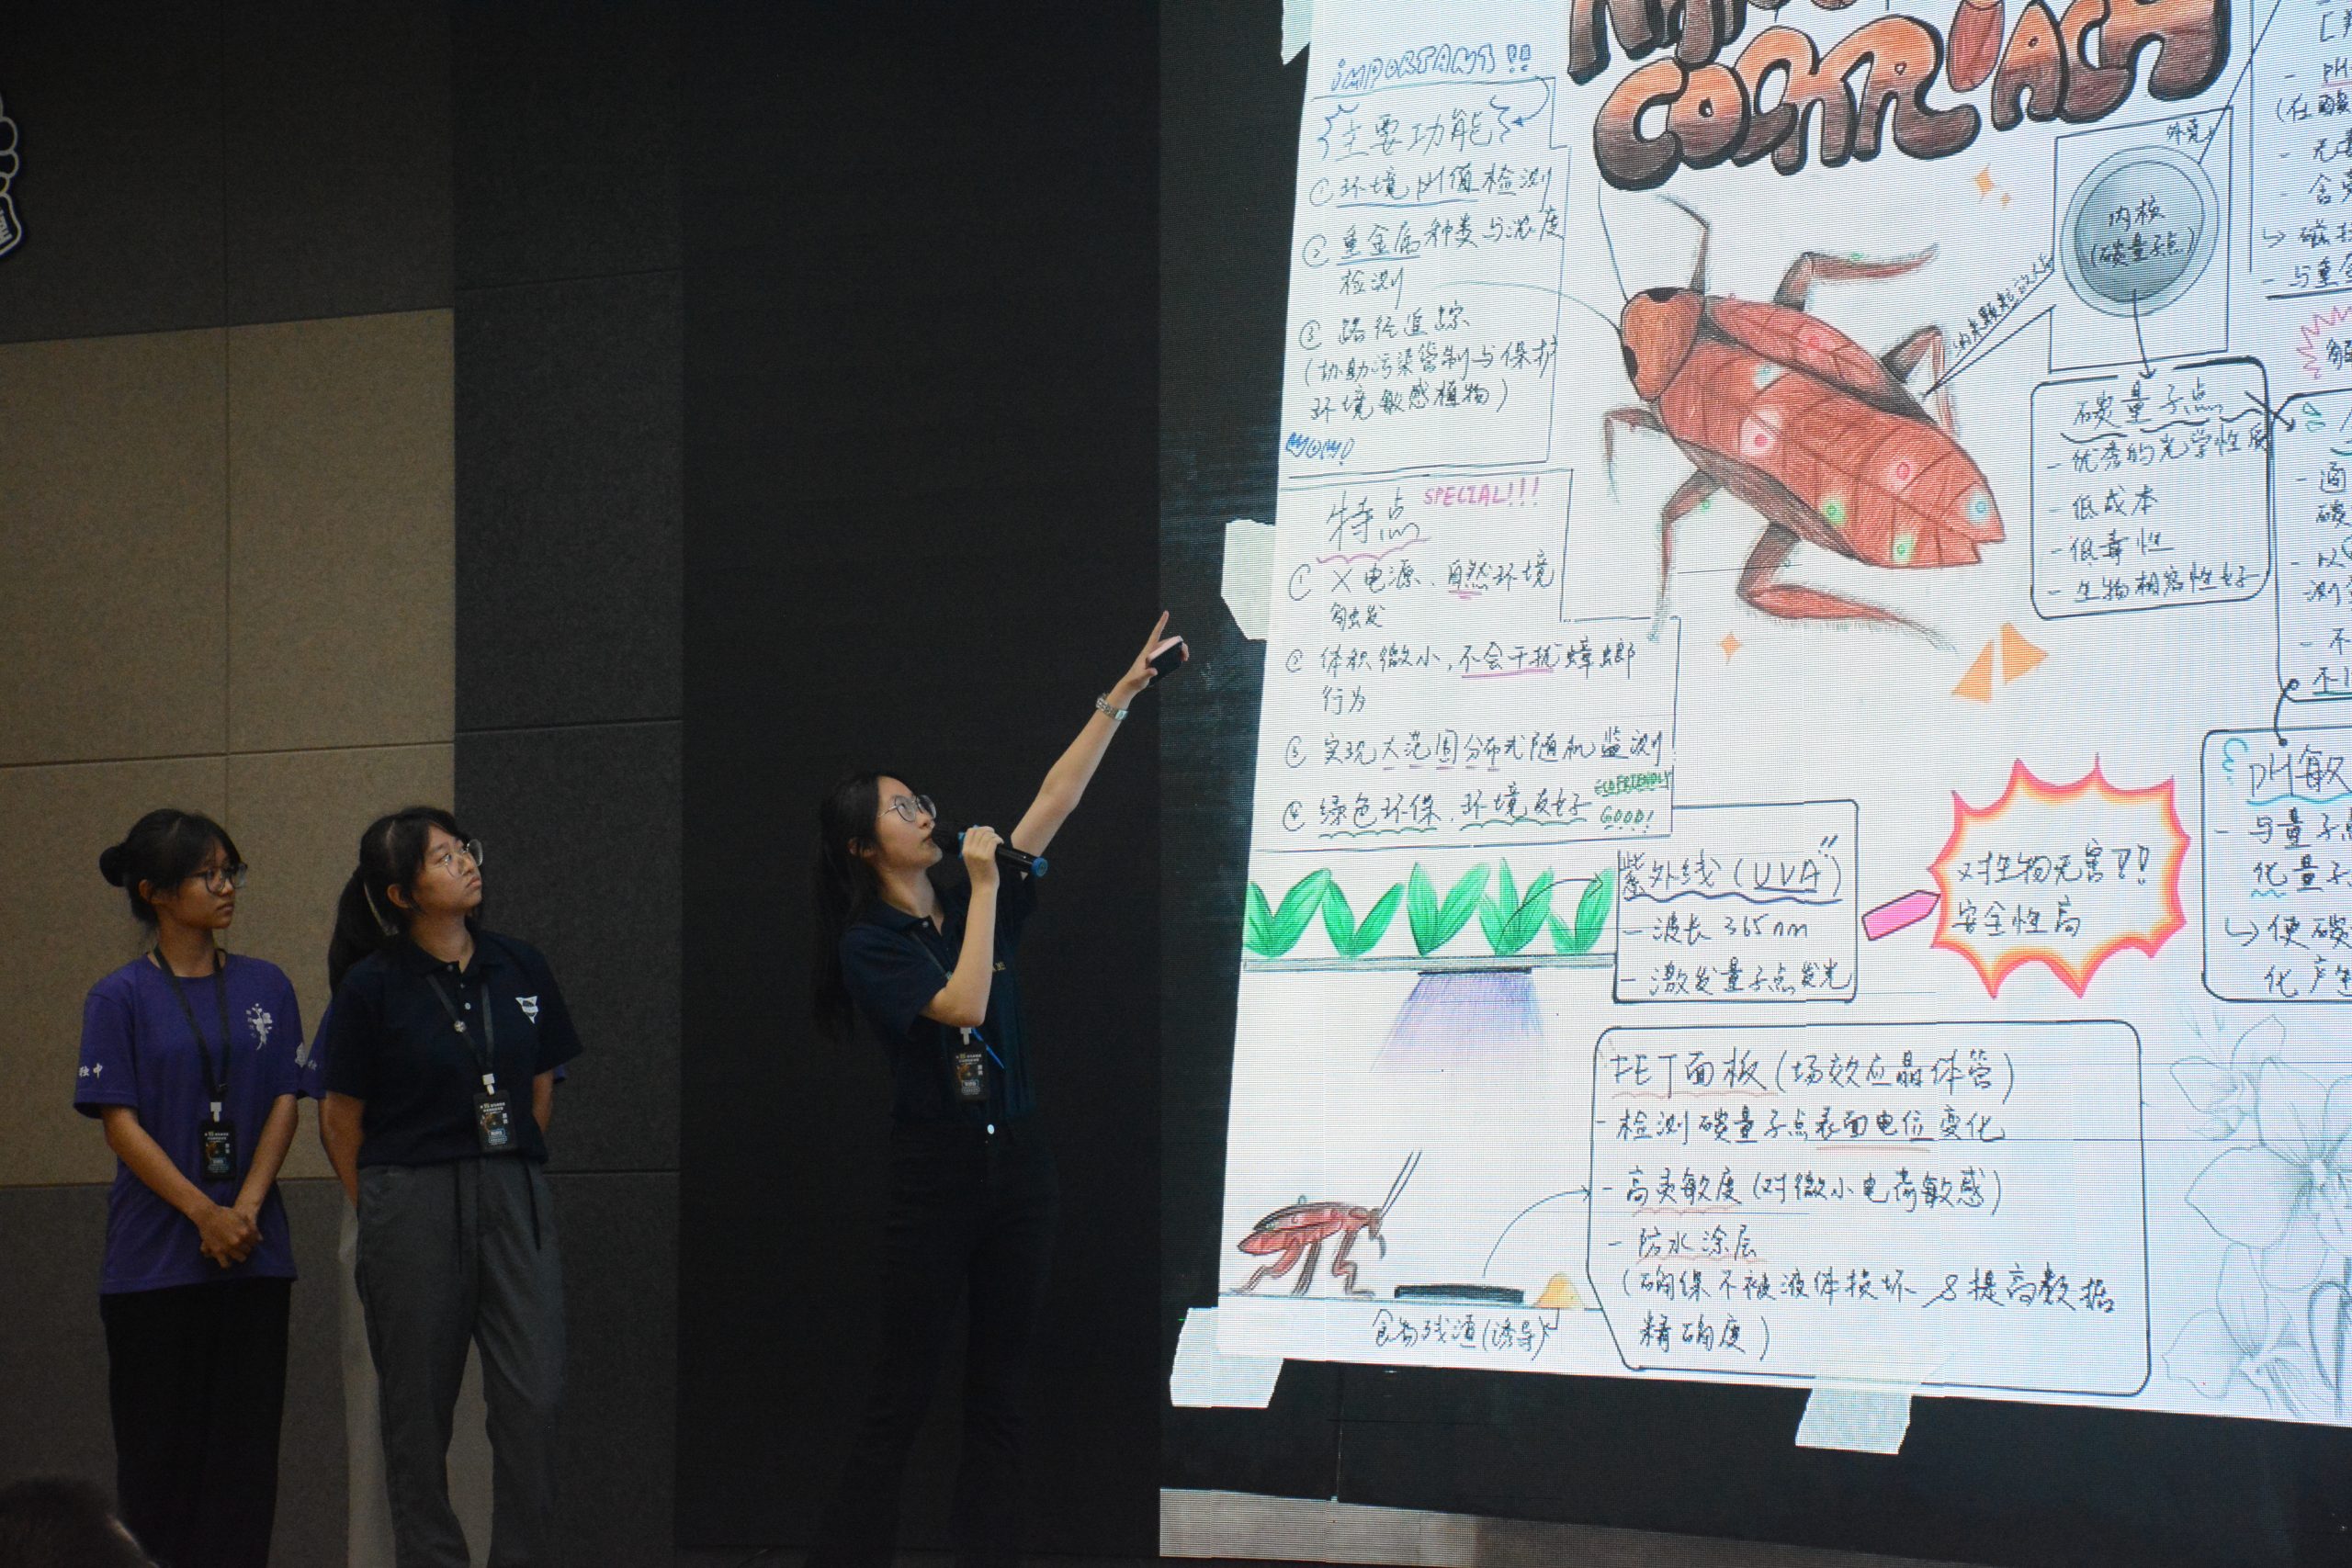 COCKROACH
IMPORTANT!!
主要功能
① 环境pH值检测
② 重金属种类与浓度
检测
③ 路径追踪
(协助污染管制与保护
环境敏感植物)
WOW!
特点 SPECIAL!!!
① X电源、自然环境
触发
② 体积微小,不会干扰蟑螂
行为
③ 实现大范围分布式随机监测
④ 绿色环保,环境友好
ECOFRIENDLY
GOOD!
外壳
内核
(碳量子点)
碳量子点
- 优秀的光学性质
- 低成本
- 低毒性
- 生物相容性好
紫外线(UVA)
- 波长 365nm
- 激发量子点发光
对生物无害!!
安全性高
FET面板(场效应晶体管)
- 检测碳量子点表面电位变化
- 高灵敏度(对微小电荷敏感)
- 防水涂层
(确保不被液体损坏 & 提高数据
精确度)
食物残渣(诱导)
pH敏
- 与量子点
化量子
↳ 使碳
化产生
独中